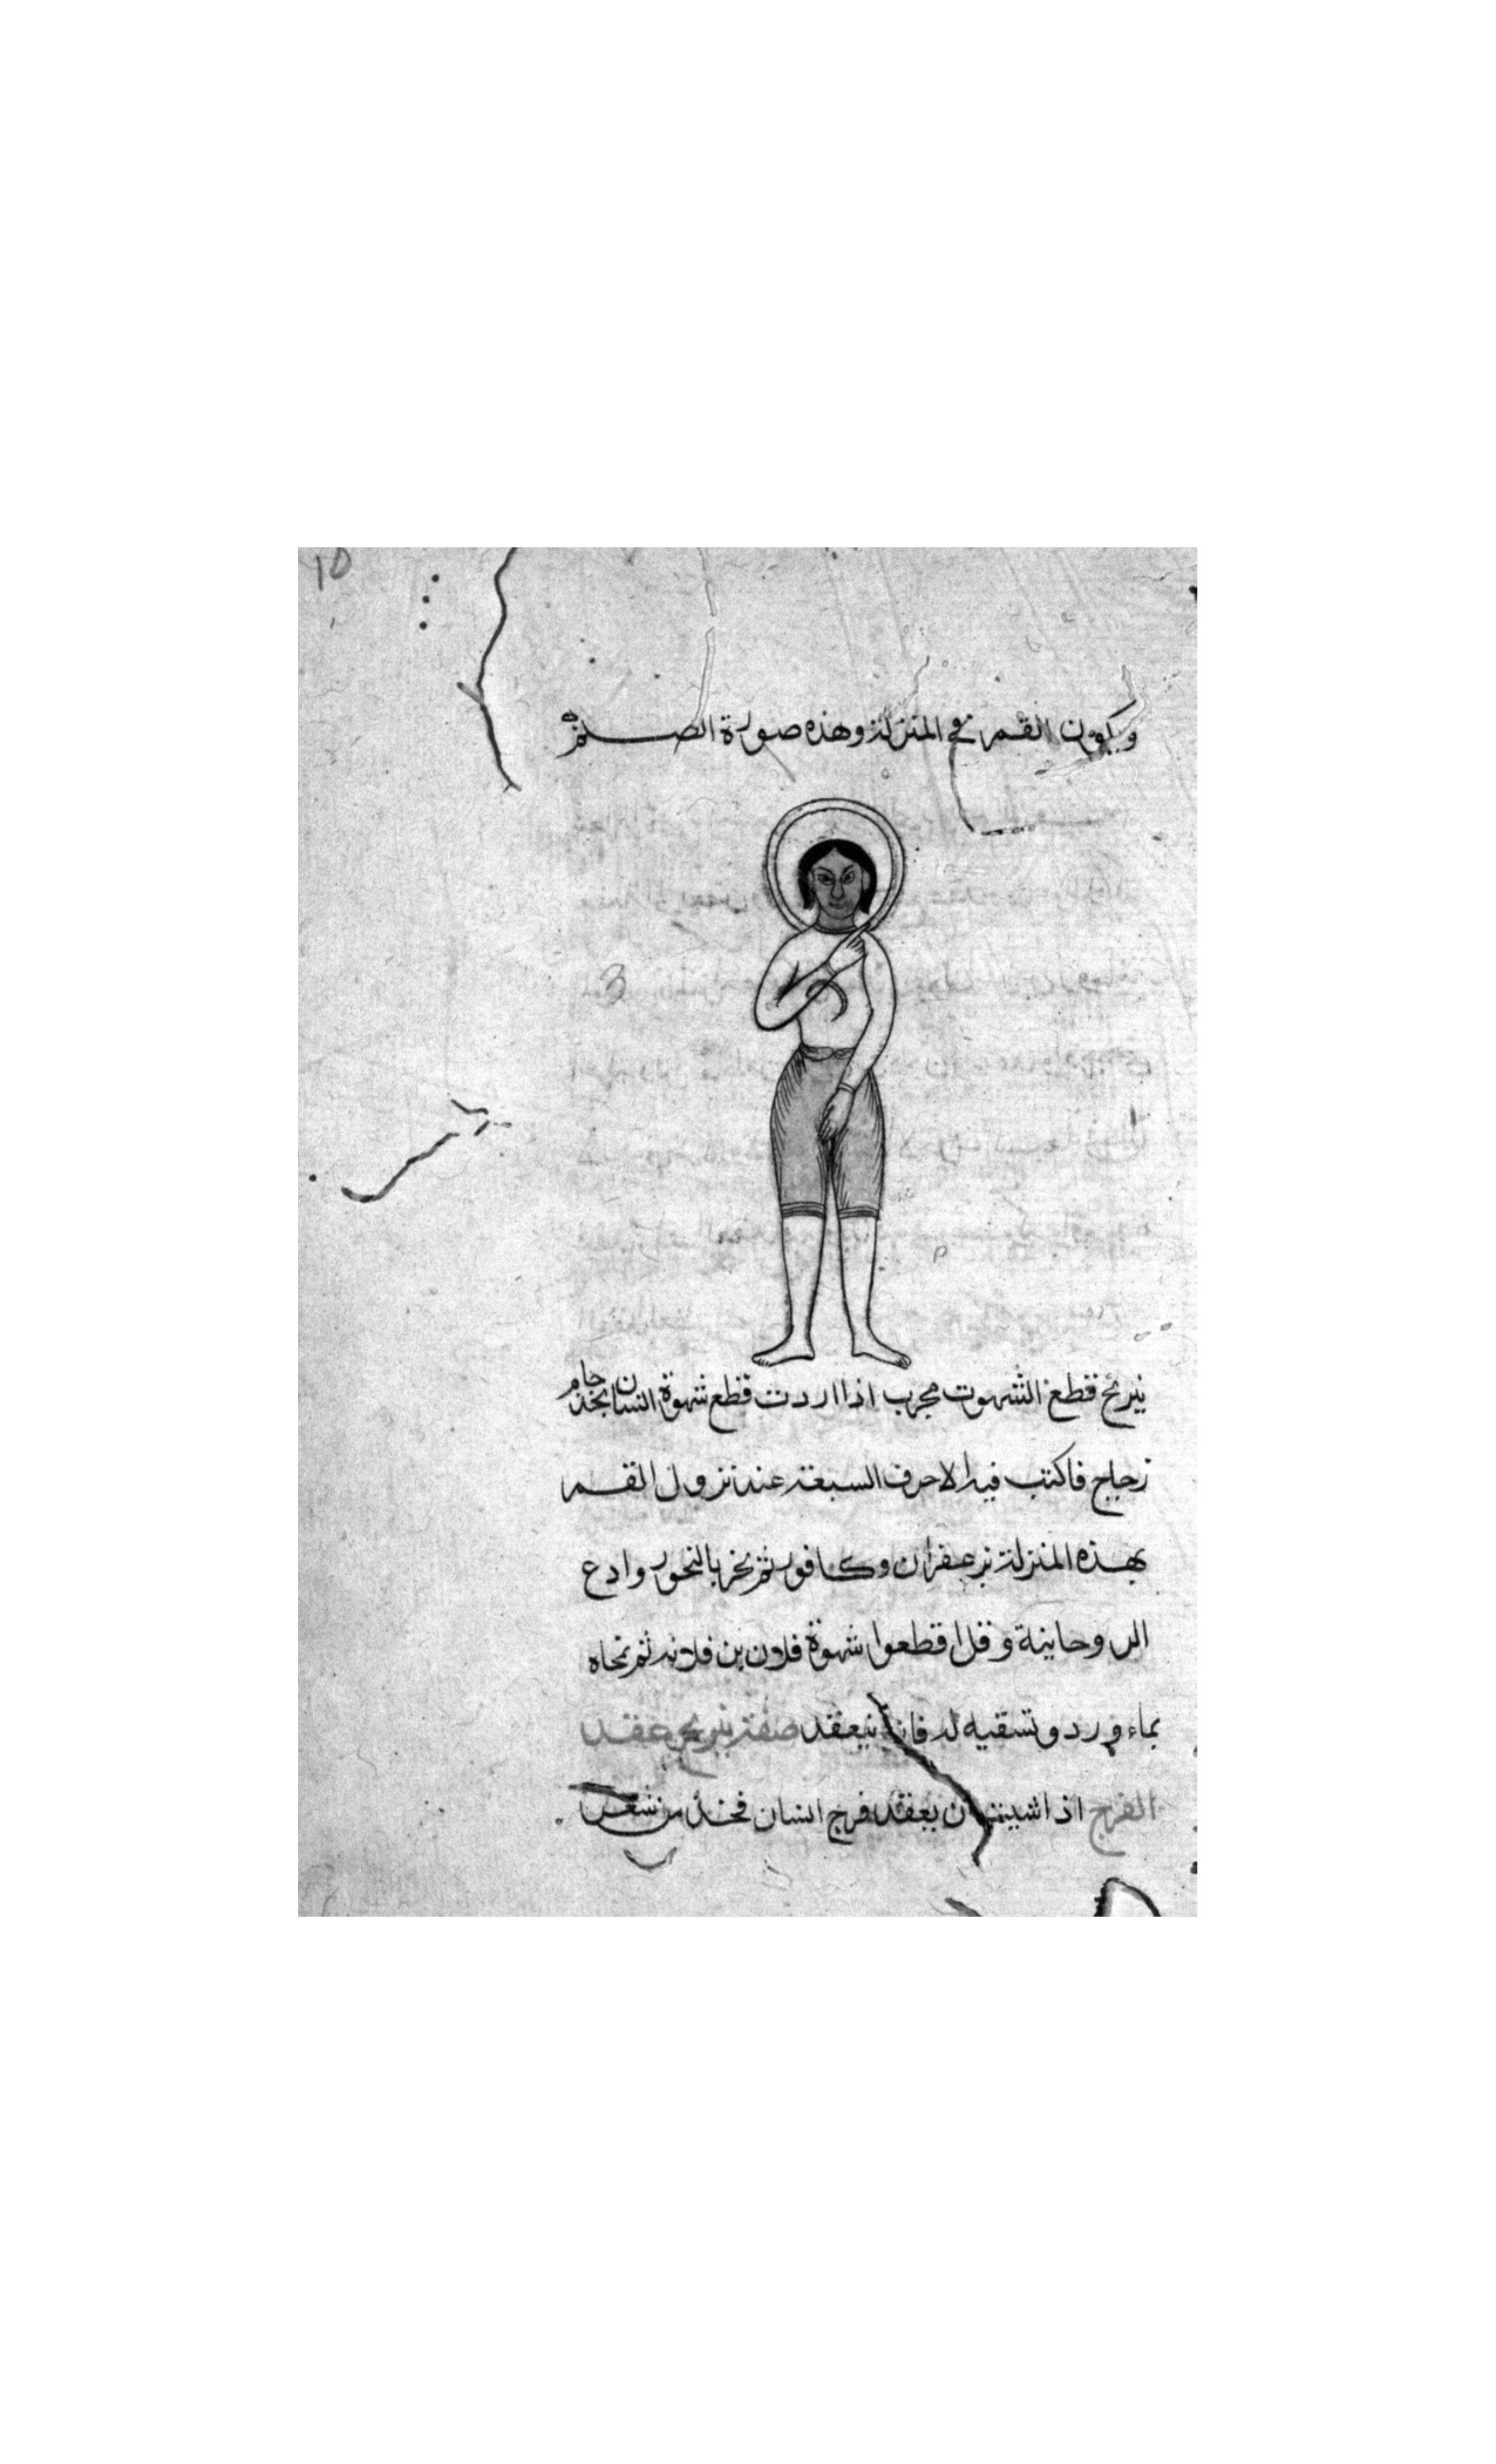 10
ويكون القمر في المنزلة وهذه صورة الصلم
3
نيرنج قطع الشهوت مجرب اذا اردت قطع شهوة انسان فخذ جام
زجاج فاكتب فيه الاحرف السبعة عند نزول القمر
بهذه المنزلة بزعفران وكافور ثم بخر بالبخور وادع
الروحانية وقل اقطعوا شهوة فلان بن فلانه ثم تمحاه
بماء ورد وتسقيه له فانه ينعقد صفة نيرنج عقد
الفرج اذا شيت ان يعقد فرج انسان فخذ من شعر